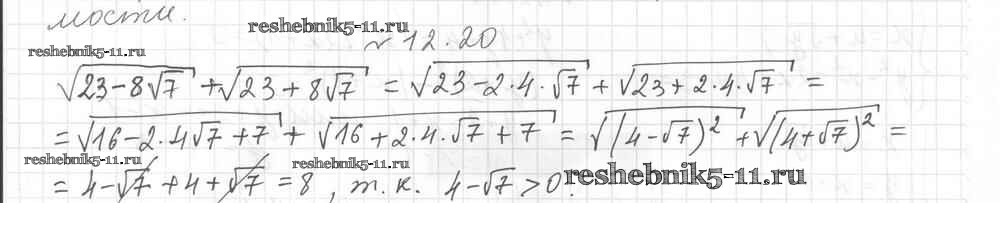 мости.
reshebnik5-11.ru
№ 12.20
reshebnik5-11.ru
√(23-8√7) + √(23+8√7) = √(23-2·4·√7) + √(23+2·4·√7) =
= √(16-2·4√7+7) + √(16+2·4·√7+7) = √((4-√7)²) + √((4+√7)²) =
reshebnik5-11.ru
reshebnik5-11.ru
= 4-√7+4+√7 = 8, т.к. 4-√7>0.
reshebnik5-11.ru